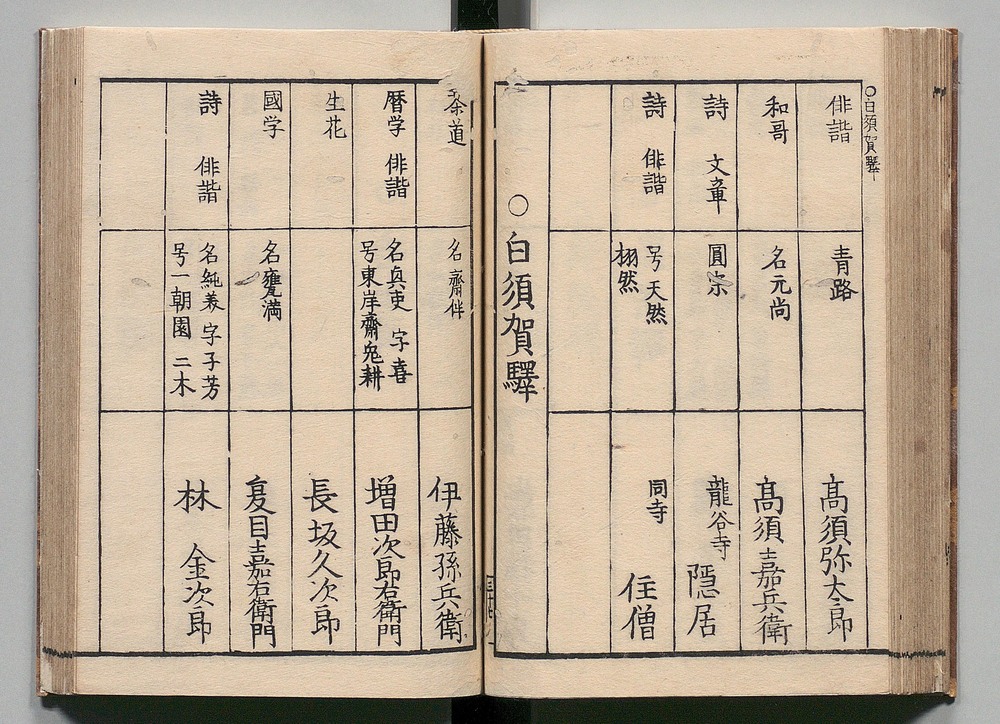 ○白須賀驛
俳諧 青路 高須弥太郎
和哥 名元尚 高須嘉兵衛
詩 文章 圓宗 龍谷寺 隠居
詩 俳諧 号天然 栩然 同寺 住僧
○白須賀驛
茶道 名齋伴 伊藤孫兵衛
暦学 俳諧 名與吏 字喜 号東岸齋兎耕 増田次郎右衛門
生花 長坂久次郎
國学 名甕満 夏目嘉右衛門
詩 俳諧 名純美 字子芳 号一朝園 二木 林 金次郎